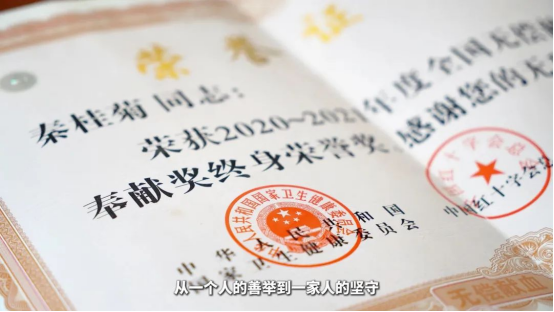 荣誉证
秦桂菊 同志：
荣获2020~2021年度全国无偿
奉献奖终身荣誉奖。感谢您的无
中华人民共和国国家卫生健康委员会
中华人民共和国
国家卫生健康委员会
中国红十字会总
无偿献血
从一个人的善举到一家人的坚守